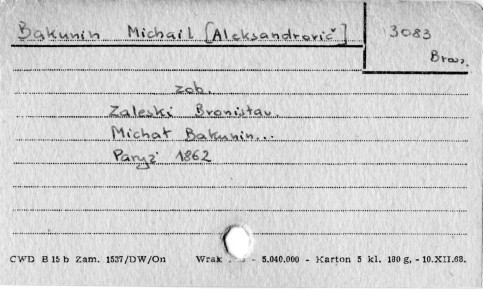 Bakunin Michail [Aleksandrovič]
3083
Brosz.
zob.
Zaleski Bronisław.
Michał Bakunin...
Paryż 1862
CWD B 15 b Zam. 1537/DW/On Wrak - 5.040.000 - Karton 5 kl. 180 g, - 10.XII.68.